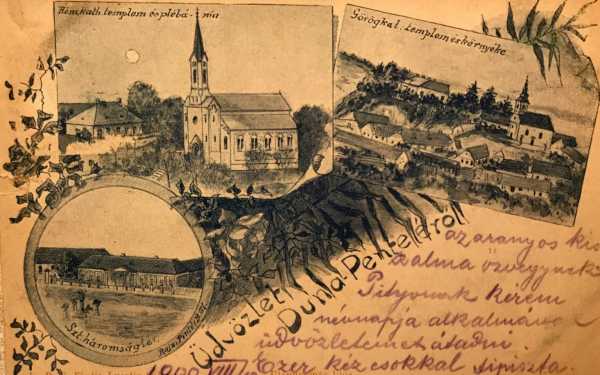 Róm.kath. templom és plébá-nia
Görögkel. templom és környéke
Szt. háromságtér.
Üdvözlet
Duna-Penteléről
az aranyos kis
Kalma özvegynek
Pityunak kérem
névnapja alkalmával
üdvözletemet átadni.
Ezer kézcsókkal
1900 VIII/